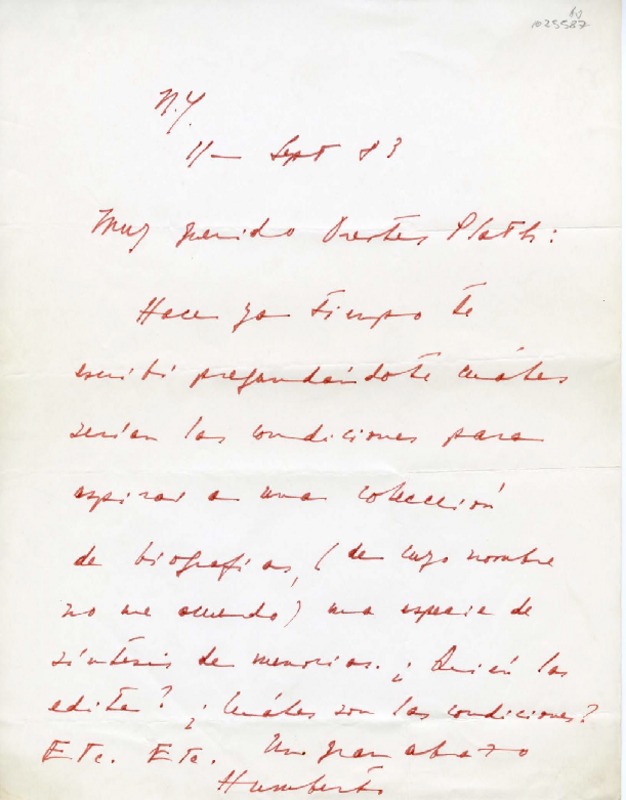 1025587
N.Y.
11- Sept 83
Muy querido Orestes Plath:
Hace ya tiempo te
escribí preguntándote cuáles
serían las condiciones para
aspirar a una colección
de biografías, (de cuyo nombre
no me acuerdo) una especie de
síntesis de memorias. ¿Quién las
edita? ¿Cuáles son las condiciones?
Etc. Etc. Un gran abrazo
Humberto